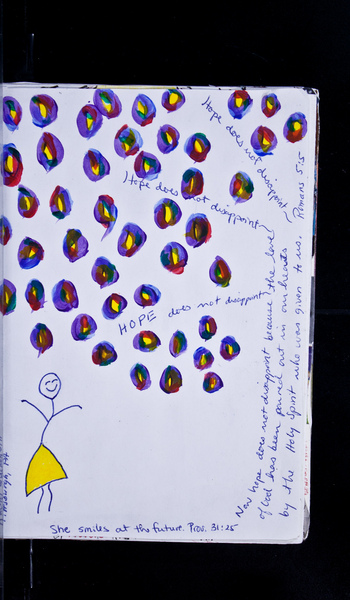 Hope does not disappoint
Hope does not disappoint
HOPE does not disappoint
Now hope does not disappoint because the love
of God has been poured out in our hearts
by the Holy Spirit who was given to us. Romans 5:5
She smiles at the future. Prov. 31:25